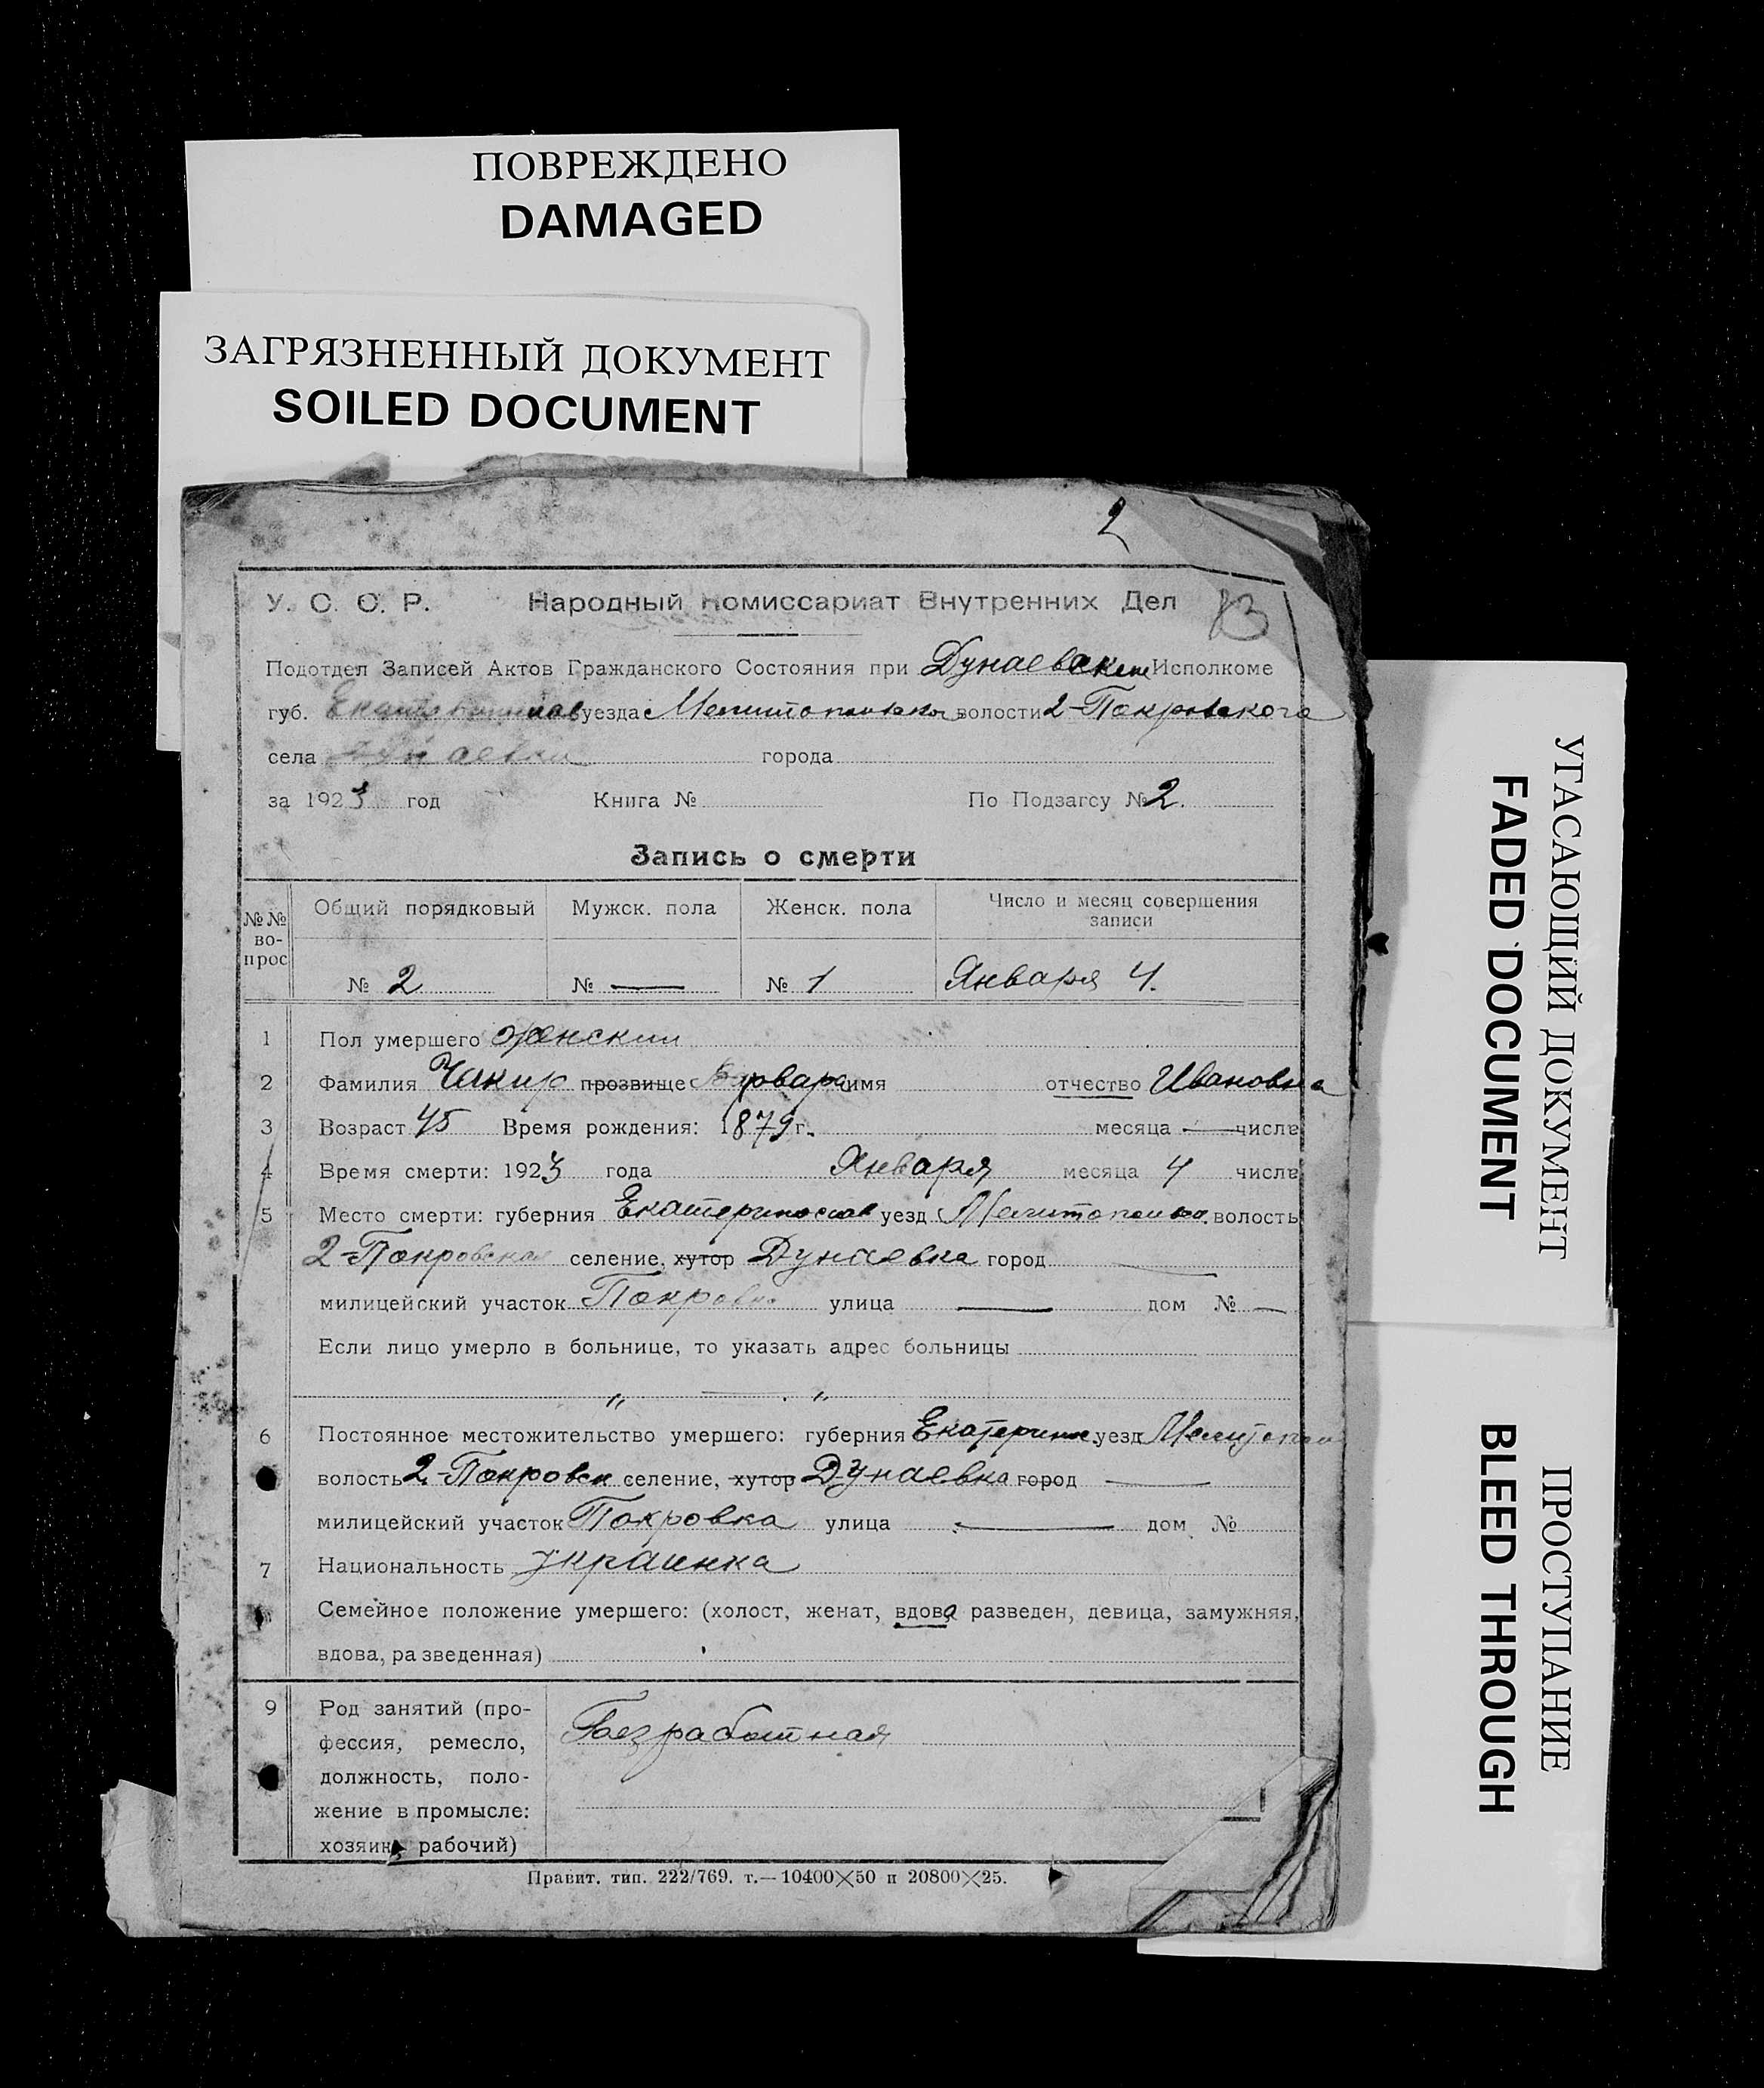 ПОВРЕЖДЕНО
DAMAGED
ЗАГРЯЗНЕННЫЙ ДОКУМЕНТ
SOILED DOCUMENT
2
У. С. С. Р. Народный Комиссариат Внутренних Дел
13
Подотдел Записей Актов Гражданского Состояния при Дунаевском Исполкоме
губ. Екатеринослав уезда Мелитопольского волости 2-Покровского
села Дунаевки города
за 1923 год Книга № По Подзагсу № 2.
Запись о смерти
№№ во-прос Общий порядковый Мужск. пола Женск. пола Число и месяц совершения записи
№ 2 № — № 1 Января 4.
1 Пол умершего женский
2 Фамилия Чакир прозвище Варвара имя отчество Ивановна
3 Возраст 45 Время рождения: 1879 г. месяца — числа
4 Время смерти: 1923 года Января месяца 4 числа
5 Место смерти: губерния Екатеринослав уезд Мелитопольск. волость
2-Покровская селение, хутор Дунаевка город —
милицейский участок Покровка улица — дом № —
Если лицо умерло в больнице, то указать адрес больницы
〃 — 〃
6 Постоянное местожительство умершего: губерния Екатерин. уезд Мелитопол
волость 2-Покровск. селение, хутор Дунаевка город —
милицейский участок Покровка улица — дом №
7 Национальность украинка
Семейное положение умершего: (холост, женат, вдова разведен, девица, замужняя,
вдова, разведенная)
9 Род занятий (про- Безработная
фессия, ремесло,
должность, поло-
жение в промысле:
хозяин, рабочий)
Правит. тип. 222/769. т.—10400×50 и 20800×25.
УГАСАЮЩИЙ ДОКУМЕНТ
FADED DOCUMENT
ПРОСТУПАНИЕ
BLEED THROUGH